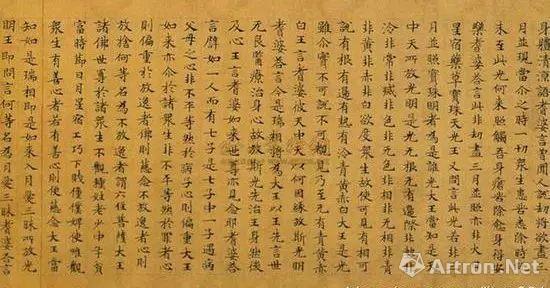 身體清涼語耆婆言曾聞人說劫將欲盡三
月並現當尒之時一切衆生患苦悉除時旣
未至此光何來照觸吾身瘡苦除愈身得安
樂耆婆答言此非劫盡三月並照亦非火日
星宿藥草寶珠天光王又問言此光若非三
月並照寶珠明者為是誰光大王當知是天
中天所放光明是光无根无有邊際非熱非
冷非常非滅非色非无色非相非无相非青
非黃非赤非白欲度衆生故使可見有相可
說有根有邊有熱有冷青黃赤白大王是光
雖尒實不可說不可覩見乃至无有青黃赤
白王言耆婆彼天中天以何因緣放斯光明
耆婆答言今是瑞相將為大王以王先言世
无良醫療治身心故放斯光先治王身然後
及心王言耆婆如來世尊亦見念耶耆婆答
言譬如一人而有七子是七子中一子遇病
父母之心非不平等然於病子心則偏重大王
如來亦尒於諸衆生非不平等然於罪者心
則偏重於放逸者佛則慈念不放逸者心則
放捨何等名為不放逸者謂六住菩薩大王
諸佛世尊於諸衆生不觀種姓老少中年貧
富時節日月星宿工巧下賤僮僕婢使唯觀
衆生有善心者若有善心則便慈念大王當
知如是瑞相即是如來入月愛三昧所放光
明王即問言何等名為月愛三昧耆婆答言
Artron.Net